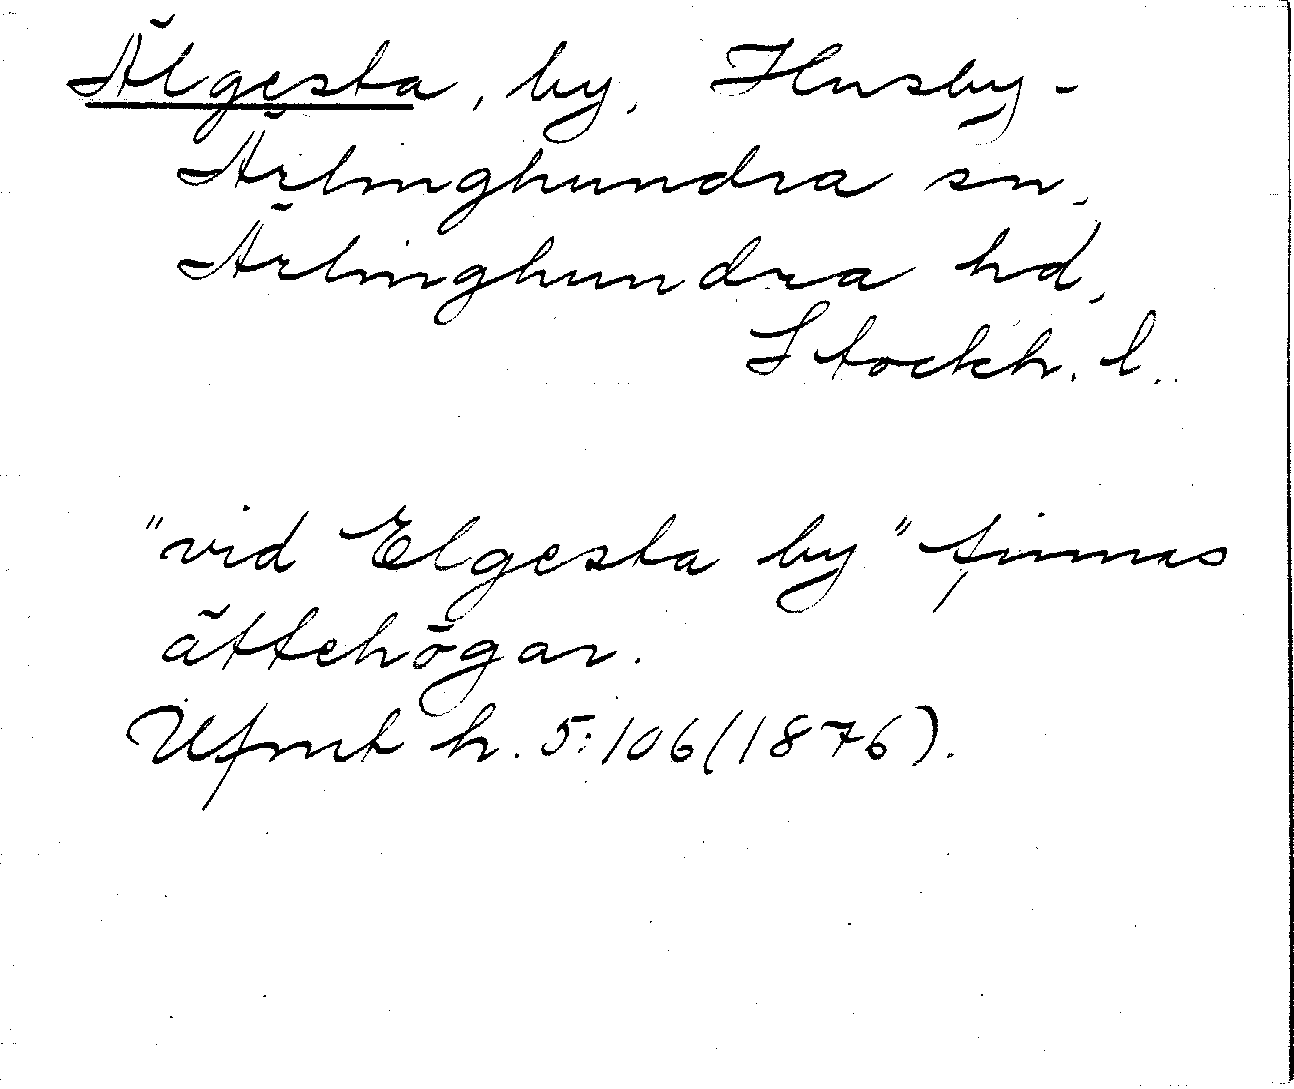 Älgesta, by, Husby-
Ärlinghundra sn,
Ärlinghundra hd,
Stockh. l.
"vid Elgesta by" finnas
ättehögar.
Ufmt h. 5:106(1876).